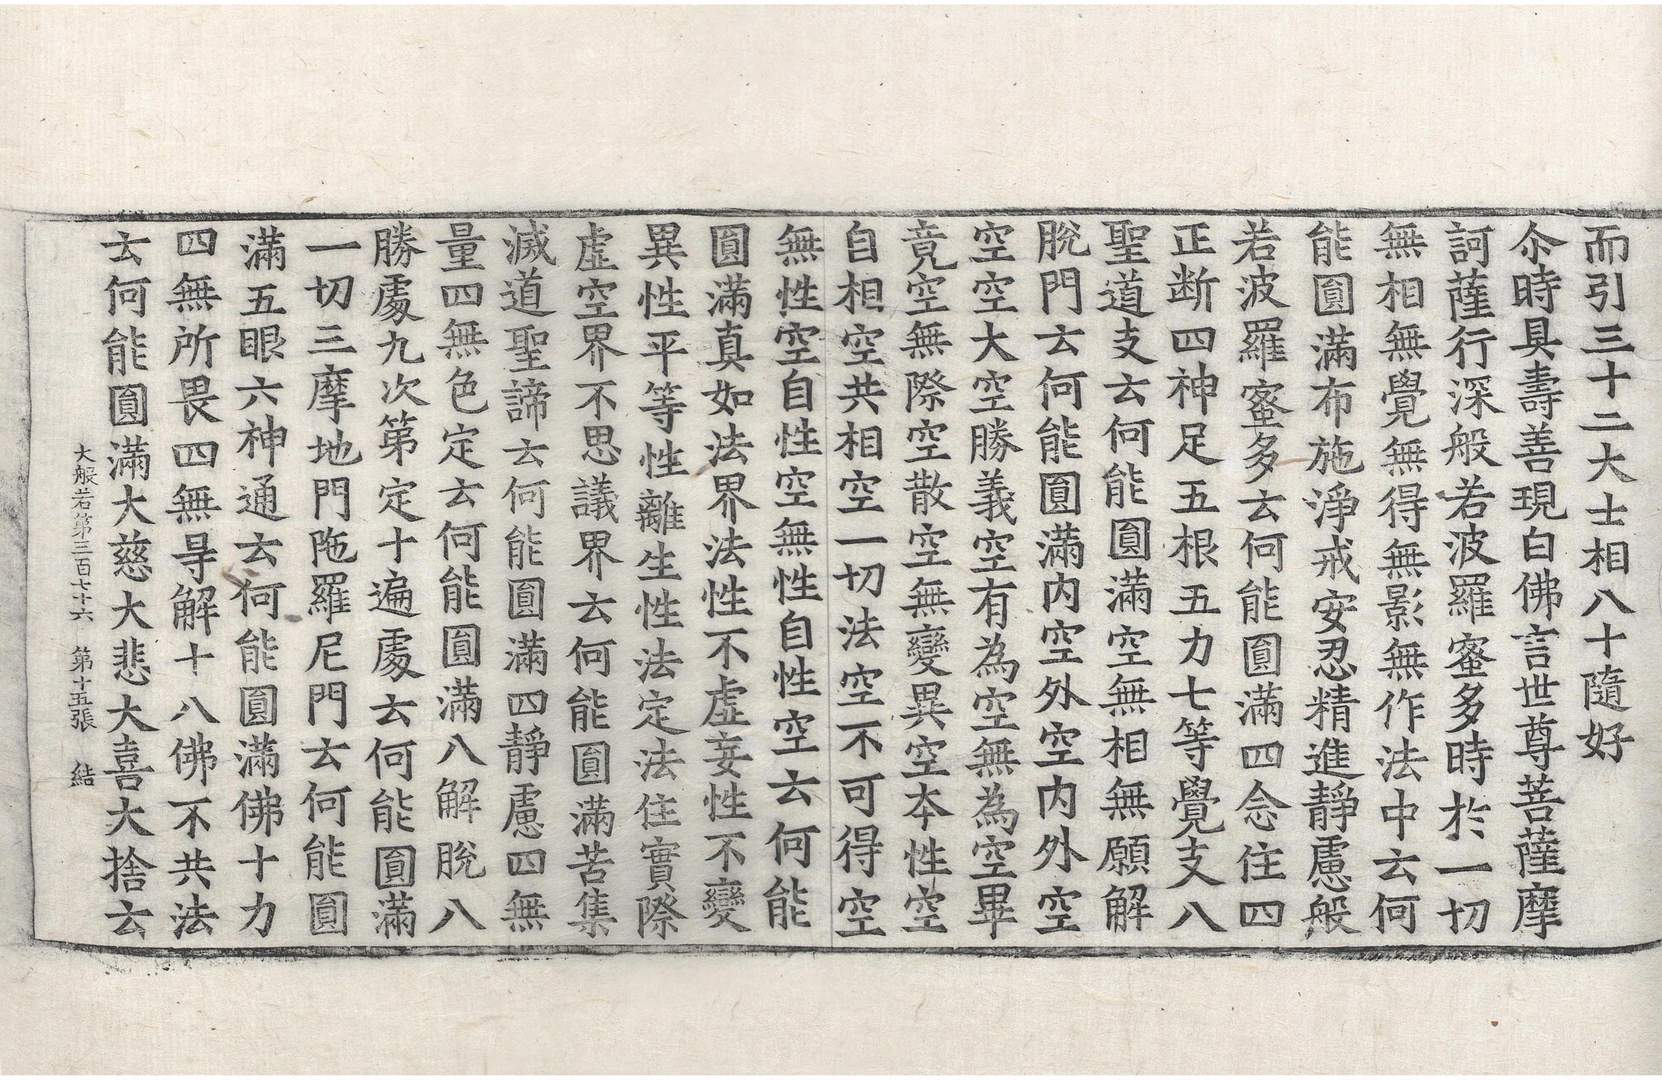 而引三十二大士相八十隨好
尒時具壽善現白佛言世尊菩薩摩
訶薩行深般若波羅蜜多時於一切
無相無覺無得無影無作法中云何
能圓滿布施淨戒安忍精進靜慮般
若波羅蜜多云何能圓滿四念住四
正断四神足五根五力七等覺支八
聖道支云何能圓滿空無相無願解
脫門云何能圓滿内空外空内外空
空空大空勝義空有為空無為空畢
竟空無際空散空無變異空本性空
自相空共相空一切法空不可得空
無性空自性空無性自性空云何能
圓滿真如法界法性不虛妄性不變
異性平等性離生性法定法住實際
虛空界不思議界云何能圓滿苦集
滅道聖諦云何能圓滿四靜慮四無
量四無色定云何能圓滿八解脫八
勝處九次第定十遍處云何能圓滿
一切三摩地門陁羅尼門云何能圓
滿五眼六神通云何能圓滿佛十力
四無所畏四無㝵解十八佛不共法
云何能圓滿大慈大悲大喜大捨云
大般若第三百七十六 第十五張 結